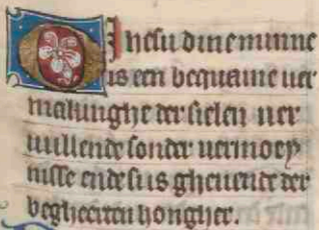 O Ihesu dine minne
is een bequame uer
malinghe der sielen uer
uullende sonder uermoey
nisse ende si is gheuende der
begheerten hongher.